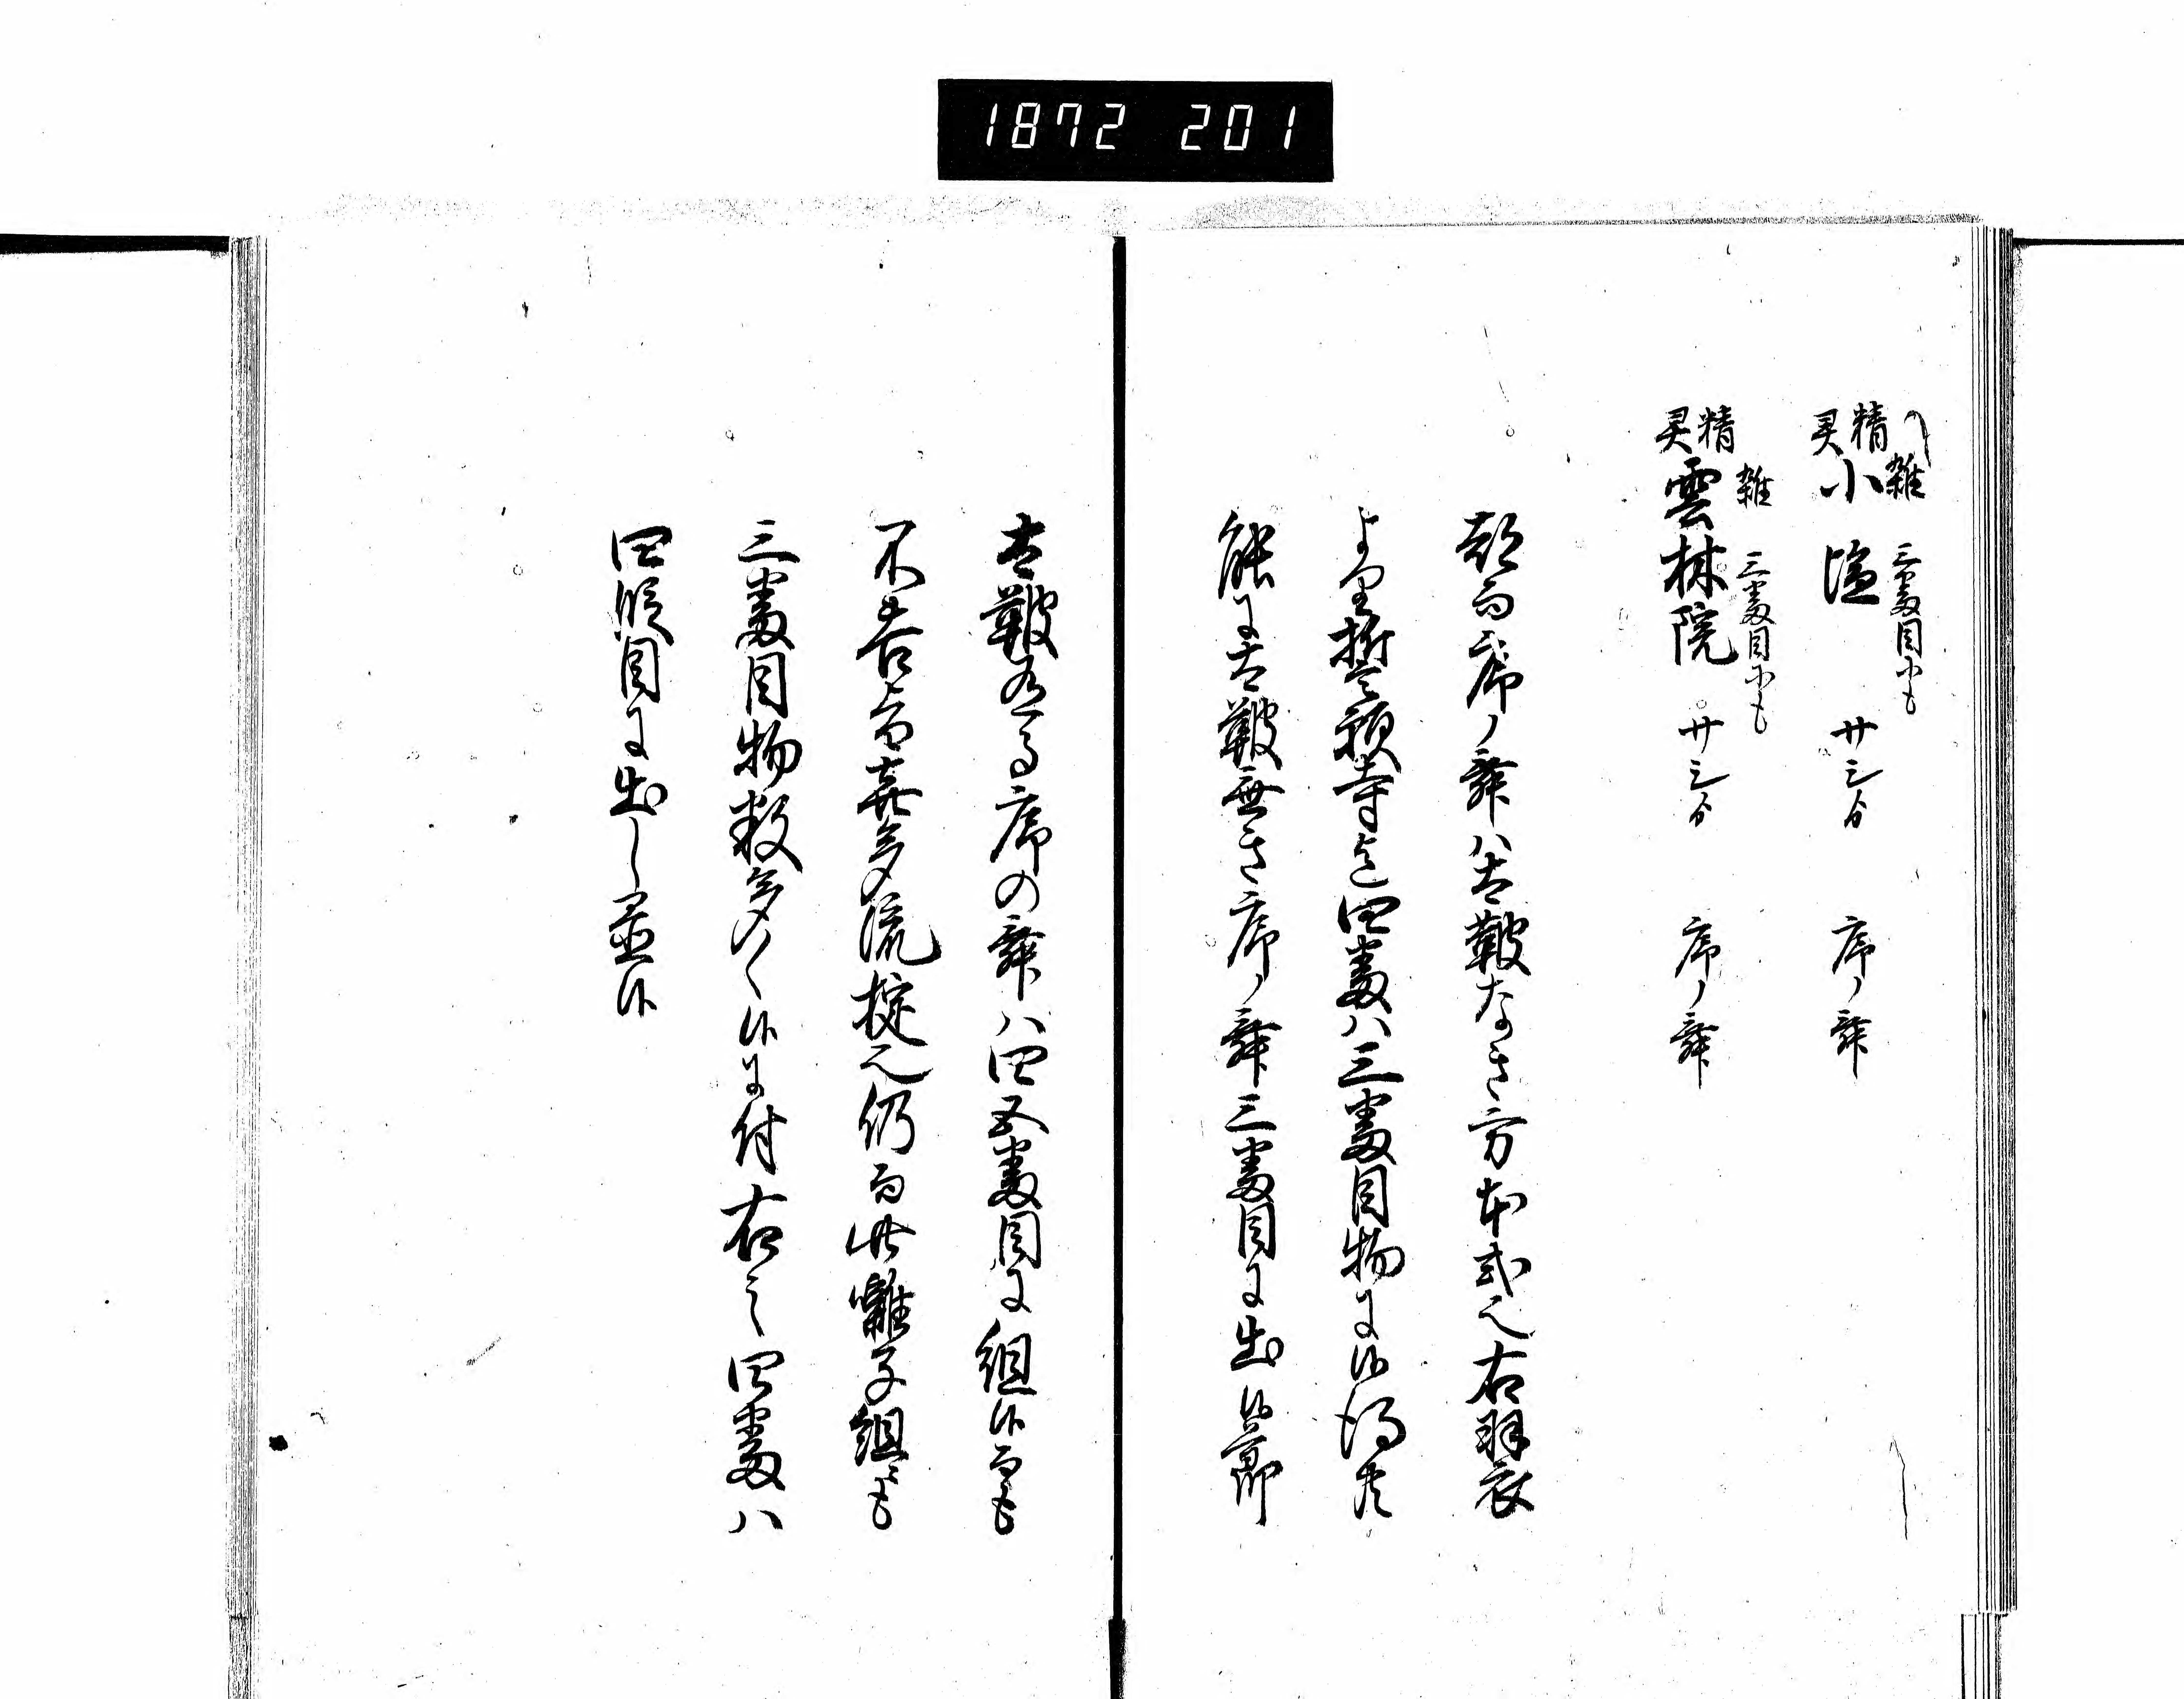 1872 201
〽雑 三番目ニも
精灵 小塩 廿三分 序ノ舞
雑 三番目ニも
精灵 雲林院 廿三分 序ノ舞
都而序ノ舞ハ太鞁なき方本式也右羽衣
より誓願寺迄四番ハ三番目物ニ候得共
能ニ太鞁無き序ノ舞三番目ニ出候節
太鞁有る序の舞ハ四五番目ニ組候而も
不苦旨喜多流掟也仍而此囃子組ニも
三番目物数多く候ニ付右之四番ハ
四順目ニ出し置候